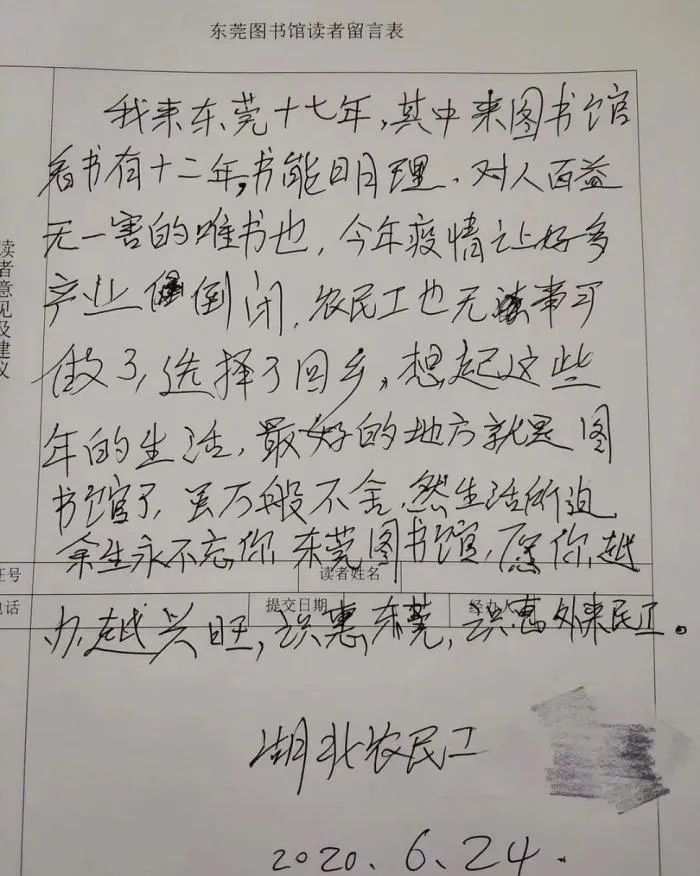 东莞图书馆读者留言表
我来东莞十七年,其中来图书馆
看书有十二年,书能明理、对人百益
无一害的唯书也,今年疫情让好多
产业倒闭,农民工也无事可
做了,选择了回乡。想起这些
年的生活,最好的地方就是图
书馆了,虽万般不舍,然生活所迫
余生永不忘你,东莞图书馆,愿你越
办越兴旺,识惠东莞,识惠外来民工。
读者意见及建议
证号
读者姓名
电话
提交日期
经办人
湖北农民工
2020、6、24.